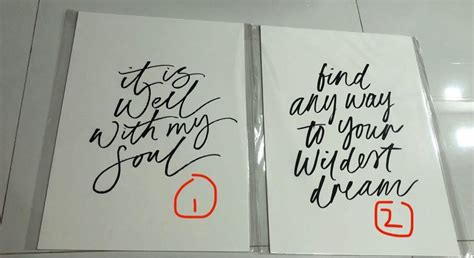 it is
Well
With my
Soul
1
find
any way
to your
Wildest
dream
2